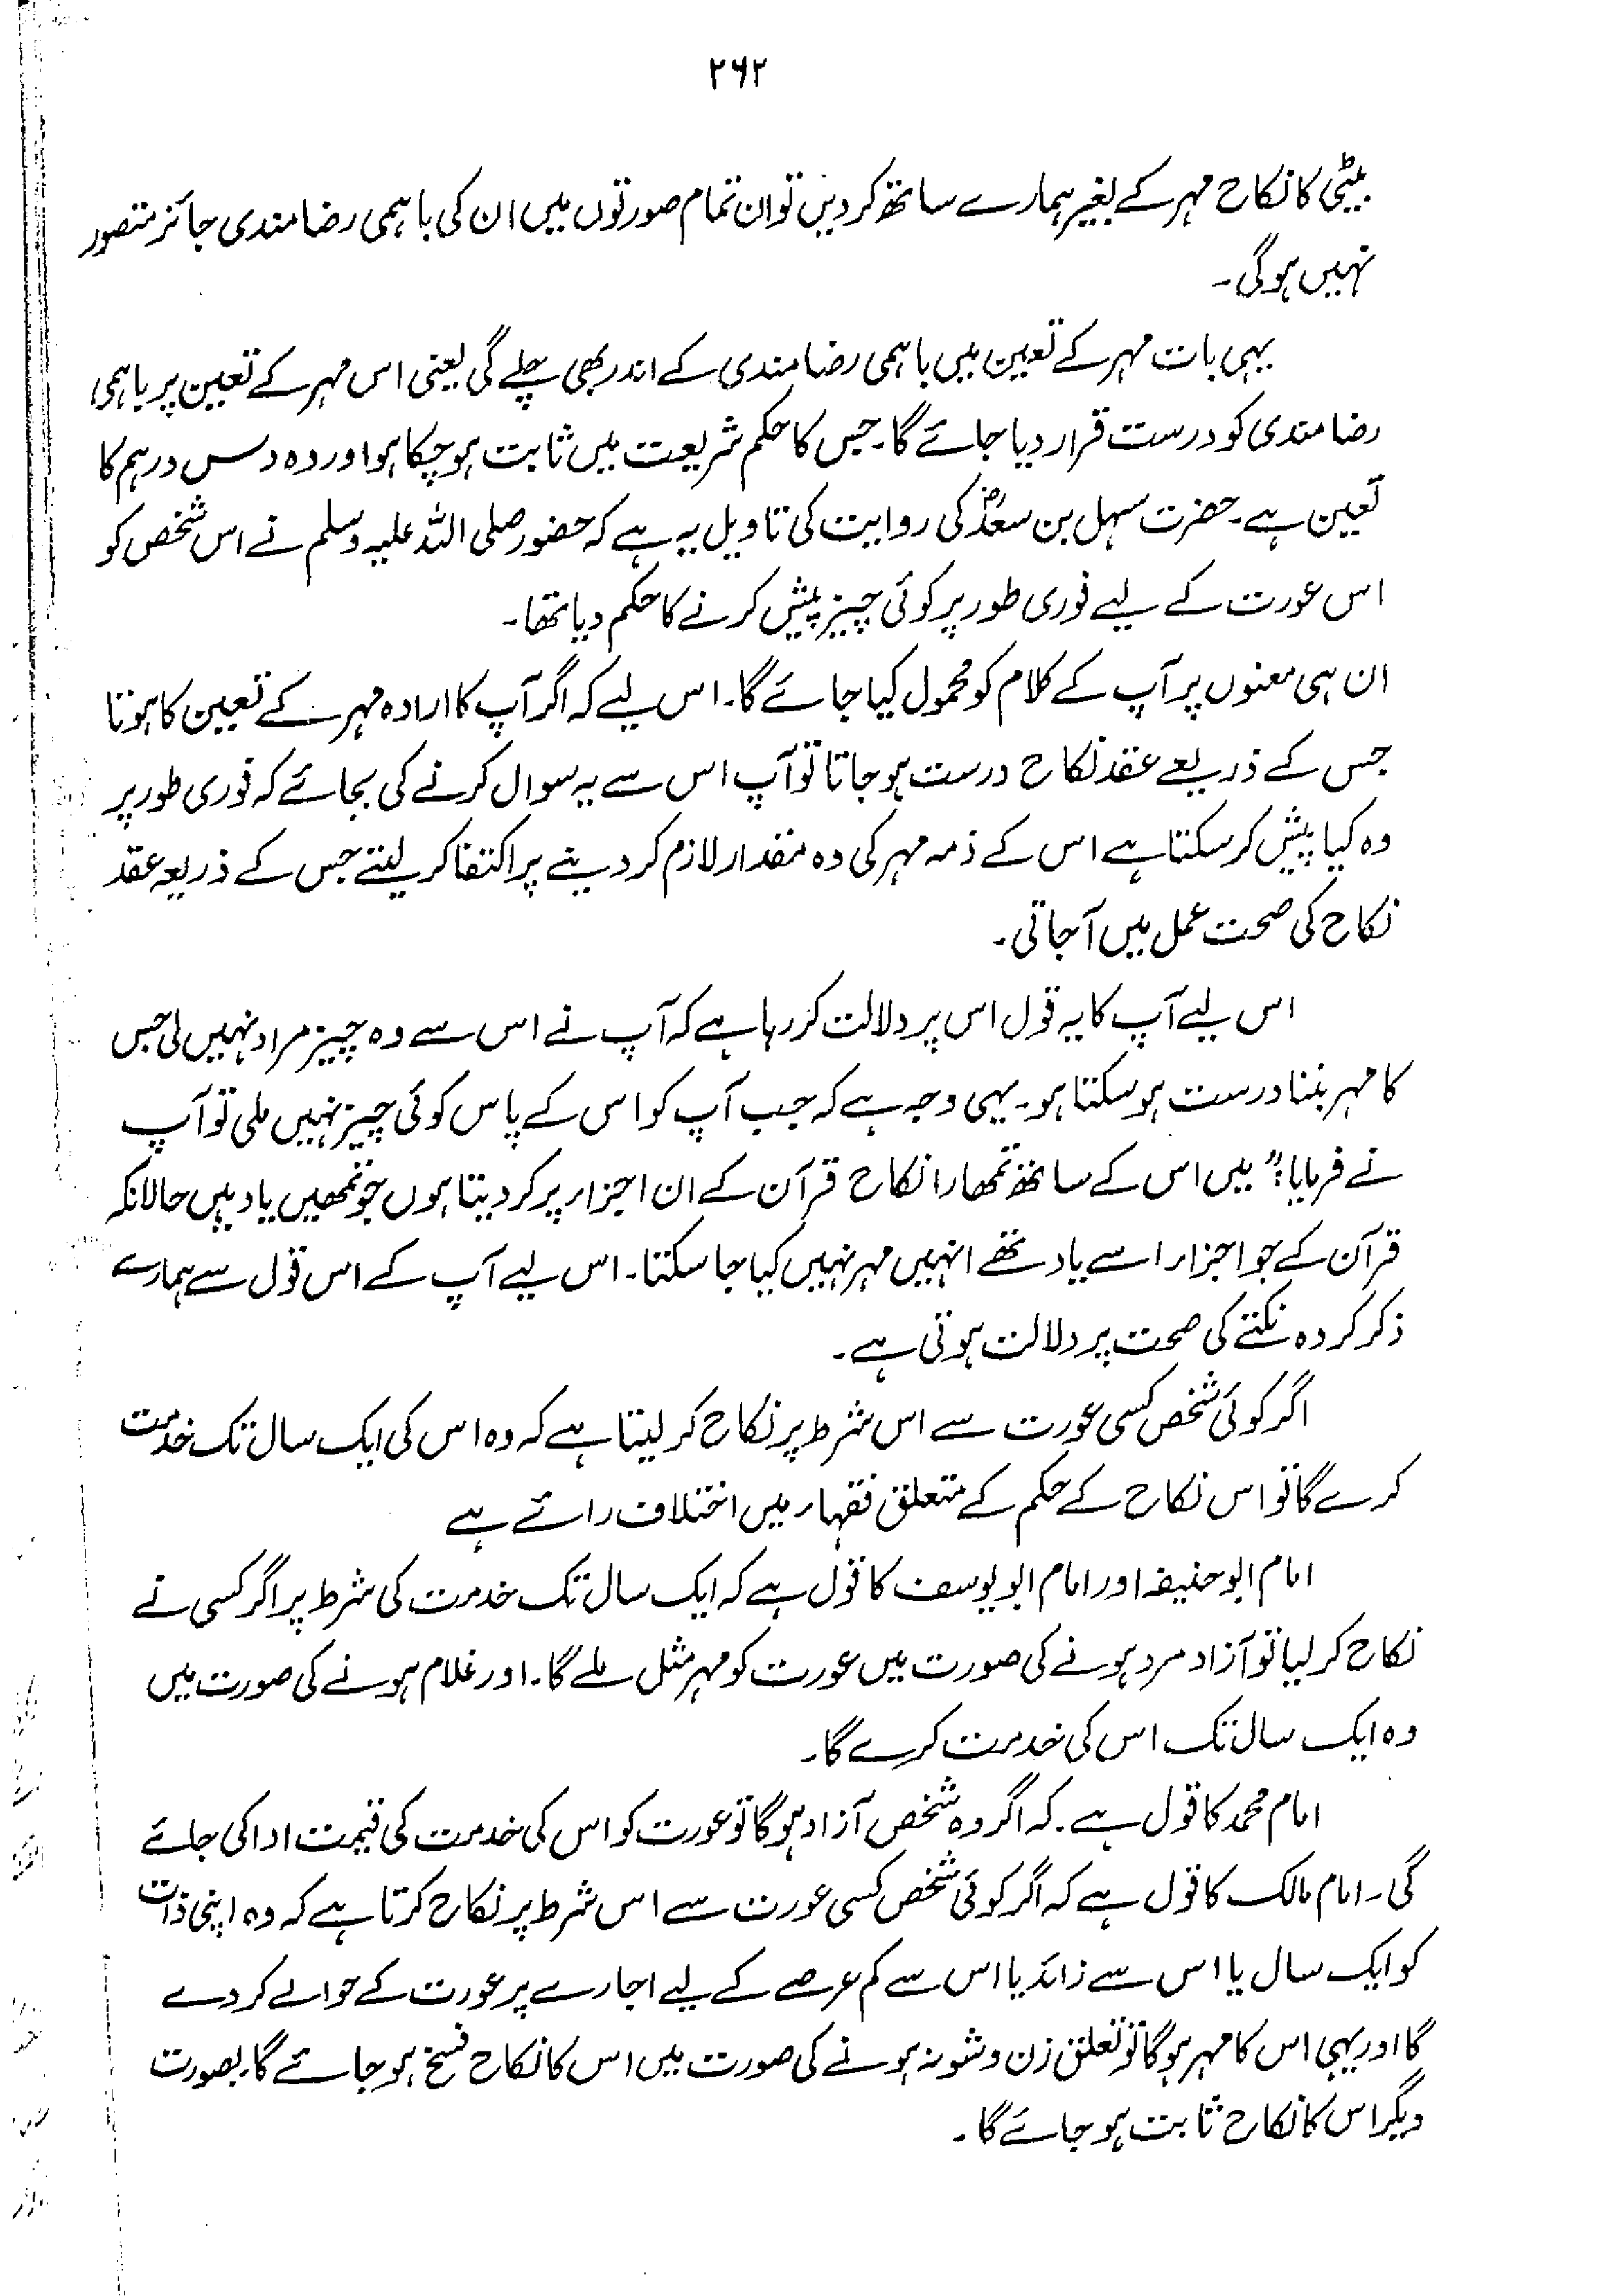 ۲۶۲
بیٹی کا نکاح مہر کے بغیر ہمارے ساتھ کر دیں تو ان تمام صورتوں میں ان کی باہمی رضامندی جائز متصور
نہیں ہوگی۔
یہی بات مہر کے تعین میں باہمی رضامندی کے اندر بھی چلے گی یعنی اس مہر کے تعین پر باہمی
رضامندی کو درست قرار دیا جائے گا۔ جس کا حکم شریعت میں ثابت ہو چکا ہو اور وہ دس درہم کا
تعین ہے۔ حضرت سہل بن سعدؓ کی روایت کی تاویل یہ ہے کہ حضور صلی اللہ علیہ وسلم نے اس شخص کو
اس عورت کے لیے فوری طور پر کوئی چیز پیش کرنے کا حکم دیا تھا۔
ان ہی معنوں پر آپ کے کلام کو محمول کیا جائے گا۔ اس لیے کہ اگر آپ کا ارادہ مہر کے تعین کا ہوتا
جس کے ذریعے عقد نکاح درست ہو جاتا تو آپ اس سے یہ سوال کرنے کی بجائے کہ فوری طور پر
وہ کیا پیش کر سکتا ہے اس کے ذمہ مہر کی وہ مقدار لازم کر دینے پر اکتفا کر لیتے جس کے ذریعہ عقد
نکاح کی صحت عمل میں آجاتی۔
اس لیے آپ کا یہ قول اس پر دلالت کر رہا ہے کہ آپ نے اس سے وہ چیز مراد نہیں لی جس
کا مہر بننا درست ہو سکتا ہو۔ یہی وجہ ہے کہ جب آپ کو اس کے پاس کوئی چیز نہیں ملی تو آپ
نے فرمایا: "میں اس کے ساتھ تمھارا نکاح قرآن کے ان اجزاء پر کر دیتا ہوں جو تمھیں یاد ہیں حالانکہ
قرآن کے جو اجزاء اسے یاد تھے انہیں مہر نہیں کیا جا سکتا۔ اس لیے آپ کے اس قول سے ہمارے
ذکر کردہ نکتے کی صحت پر دلالت ہوتی ہے۔
اگر کوئی شخص کسی عورت سے اس شرط پر نکاح کر لیتا ہے کہ وہ اس کی ایک سال تک خدمت
کرے گا تو اس نکاح کے حکم کے متعلق فقہاء میں اختلاف رائے ہے
امام ابو حنیفہ اور امام ابو یوسف کا قول ہے کہ ایک سال تک خدمت کی شرط پر اگر کسی نے
نکاح کر لیا تو آزاد مرد ہونے کی صورت میں عورت کو مہر مثل ملے گا۔ اور غلام ہونے کی صورت میں
وہ ایک سال تک اس کی خدمت کرے گا۔
امام محمد کا قول ہے۔ کہ اگر وہ شخص آزاد ہوگا تو عورت کو اس کی خدمت کی قیمت ادا کی جائے
گی۔ امام مالک کا قول ہے کہ اگر کوئی شخص کسی عورت سے اس شرط پر نکاح کرتا ہے کہ وہ اپنی ذات
کو ایک سال یا اس سے زائد یا اس سے کم عرصے کے لیے اجارے پر عورت کے حوالے کر دے
گا اور یہی اس کا مہر ہوگا تو تعلق زن و شو نہ ہونے کی صورت میں اس کا نکاح فسخ ہو جائے گا۔ بصورت
دیگر اس کا نکاح ثابت ہو جائے گا۔